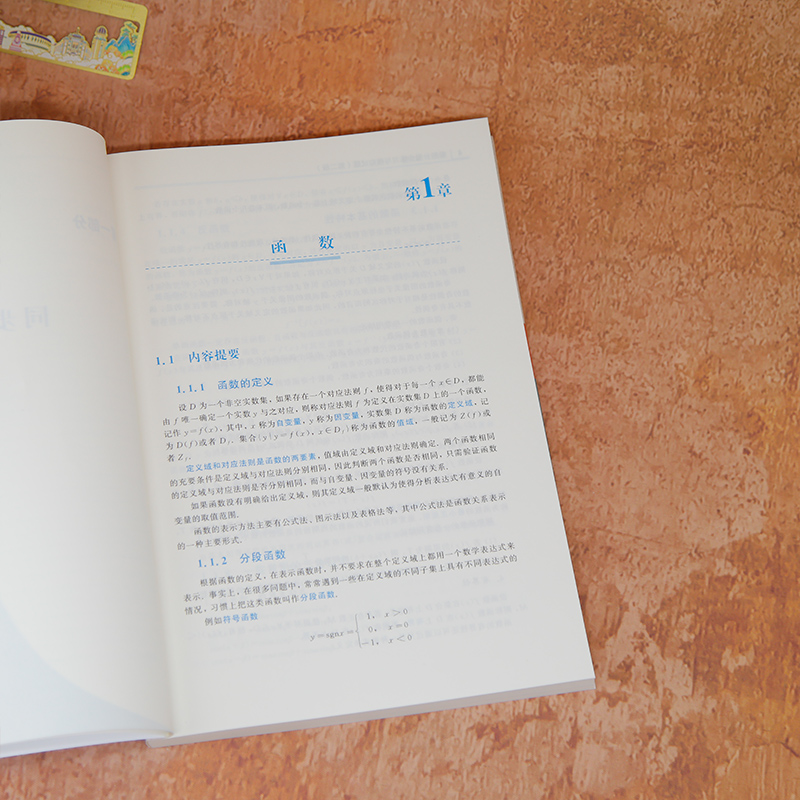 第1章
函 数
1.1 内容提要
1.1.1 函数的定义
设 D 为一个非空实数集，如果存在一个对应法则 f，使得对于每一个 x∈D，都能
由 f 唯一确定一个实数 y 与之对应，则称对应法则 f 为定义在实数集 D 上的一个函数，
记作 y=f(x)，其中，x 称为自变量，y 称为因变量，实数集 D 称为函数的定义域，记
为 D(f)或者 D_f. 集合{y|y=f(x)，x∈D_f}称为函数的值域，一般记为 Z(f)或
者 Z_f.
定义域和对应法则是函数的两要素，值域由定义域和对应法则确定. 两个函数相同
的充要条件是定义域与对应法则分别相同，因此判断两个函数是否相同，只需验证函数
的定义域与对应法则是否分别相同，而与自变量、因变量的符号没有关系.
如果函数没有明确给出定义域，则其定义域一般默认为使得分析表达式有意义的自
变量的取值范围.
函数的表示方法主要有公式法、图示法以及表格法等，其中公式法是函数关系表示
的一种主要形式.
1.1.2 分段函数
根据函数的定义，在表示函数时，并不要求在整个定义域上都用一个数学表达式来
表示. 事实上，在很多问题中，常常遇到一些在定义域的不同子集上具有不同表达式的
情况，习惯上把这类函数叫作分段函数.
例如符号函数
1， x>0
y=sgnx={ 0， x=0
-1， x<0